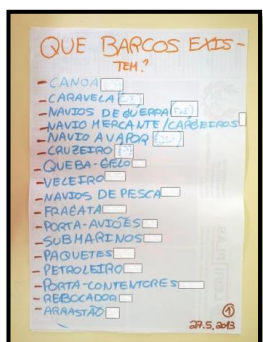 QUE BARCOS EXIS-
TEM?
- CANOA
- CARAVELA
- NAVIOS DE GUERRA
- NAVIO MERCANTE/CARGEIROS
- NAVIO A VAPOR
- CRUZEIRO
- QUEBA-GELO
- VELEIRO
- NAVIOS DE PESCA
- FRAGATA
- PORTA-AVIÕES
- SUBMARINOS
- PAQUETES
- PETROLEIRO
- PORTA-CONTENTORES
- REBOCADOR
- ARRASTÃO
1
27.5.2013